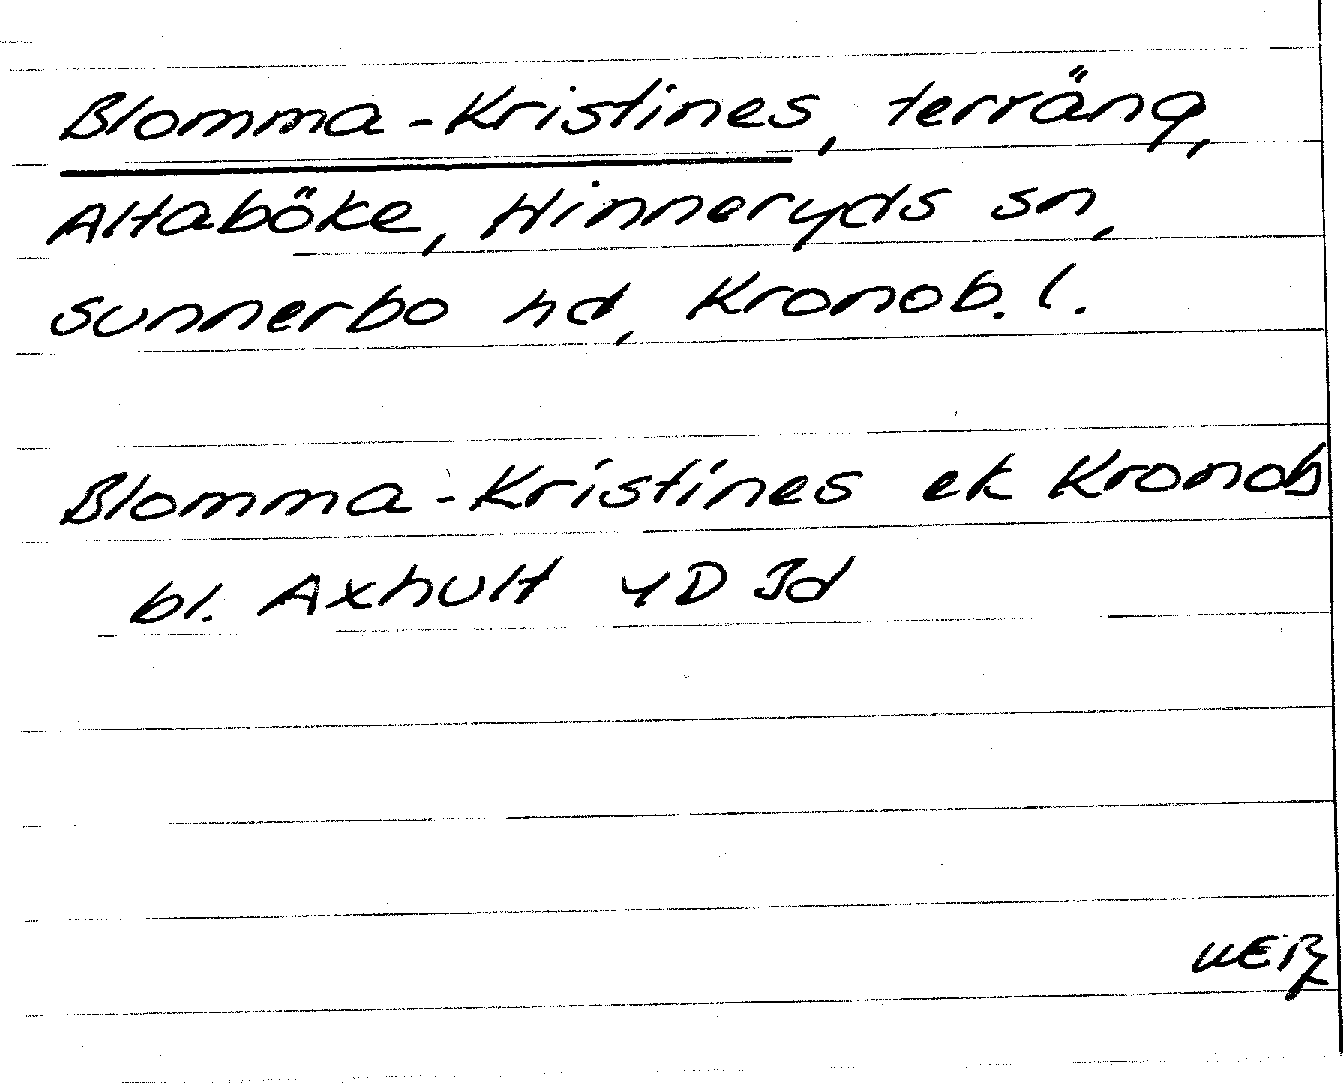 Blomma-Kristines, terräng,
Altaböke, Hinneryds sn,
Sunnerbo hd, Kronob. l.
Blomma-Kristines ek Kronob
bl. Axhult 4D 3d